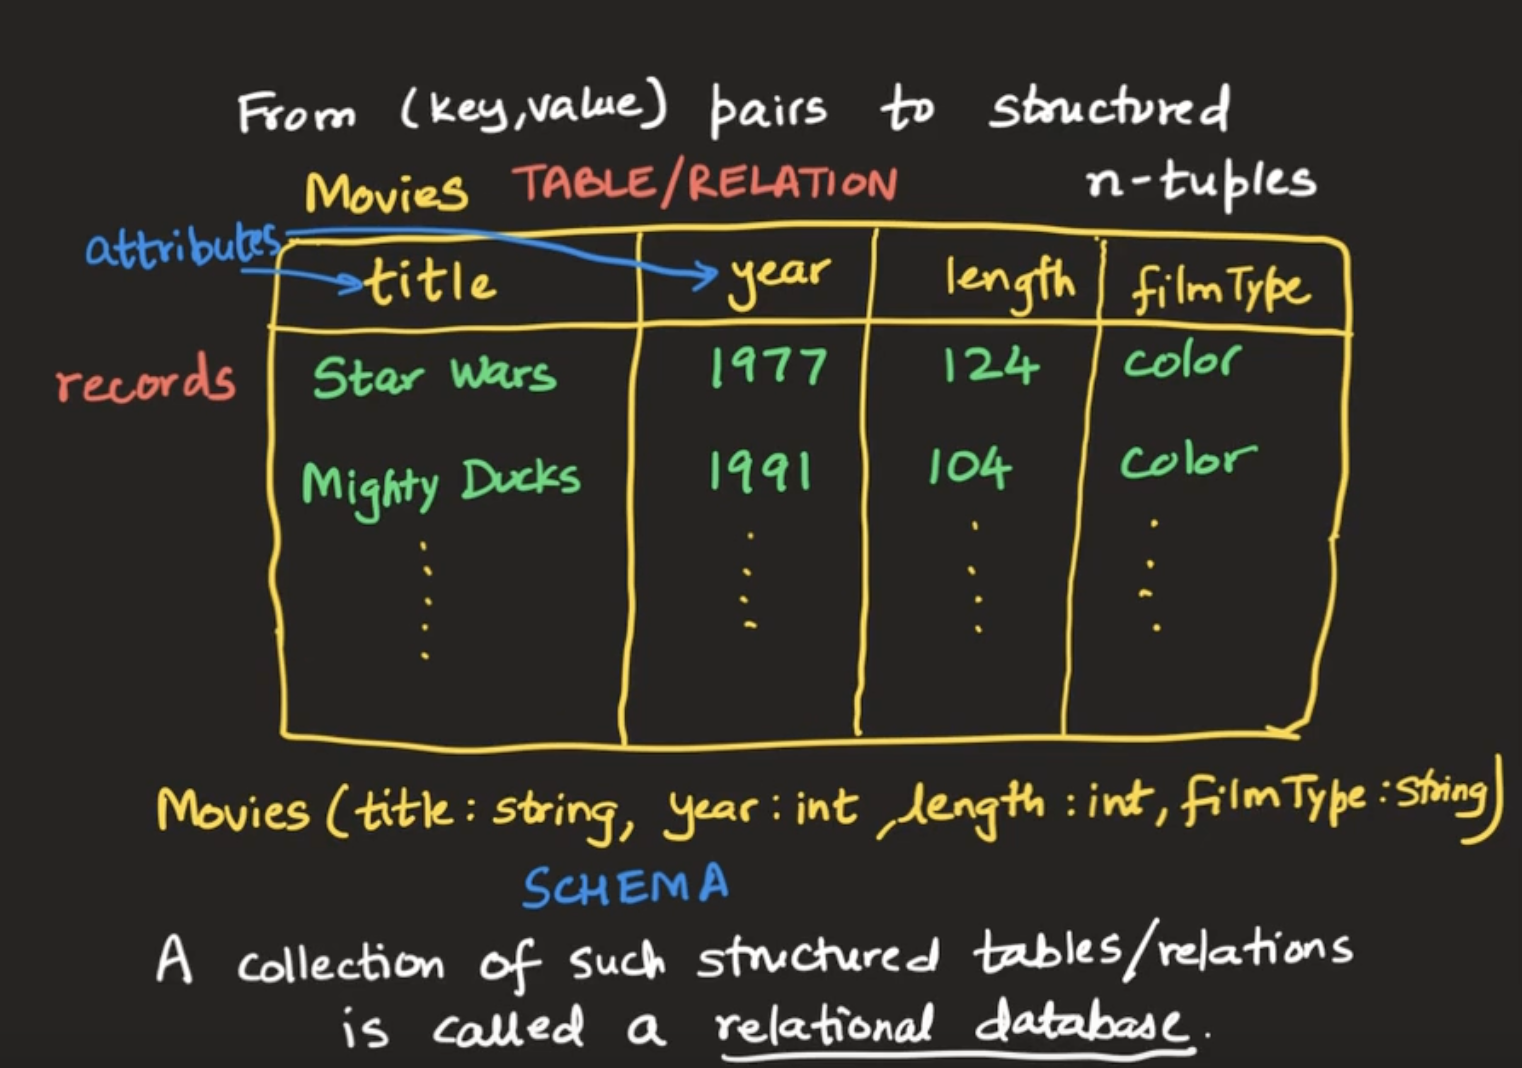 From (key,value) pairs to structured
n-tuples
Movies TABLE/RELATION
attributes
title year length filmType
records
Star Wars 1977 124 color
Mighty Ducks 1991 104 color
Movies (title: string, year: int, length: int, filmType: string)
SCHEMA
A collection of such structured tables/relations
is called a relational database.